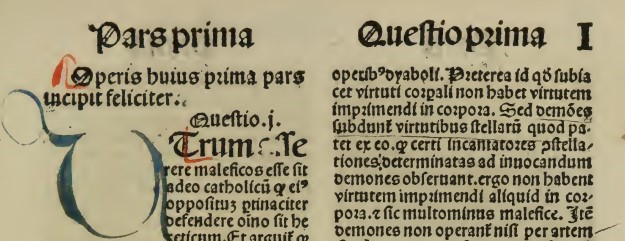 Pars prima
Questio prima I
Operis huius prima pars
incipit feliciter.
Questio.j.
UTrum asse
rere maleficos esse sit
adeo catholicū ꝙ eiꝰ
oppositū ꝑtinaciter
defendere oīno sit he
reticum. Et arguiť ꝙ
operibꝰ dyaboli. Preterea id qḋ subia
cet virtuti corꝑali non habet virtutem
imprimendi in corpora. Sed demōes
subdunť virtutibus stellarū quod pa-
tet ex eo. ꝙ certi incantatores ꝯstella-
tiones determinatas ad inuocandum
demones obseruant. ergo non habent
virtutem imprimendi aliquid in cor-
pora. ⁊ sic multominus malefice. Itē
demones non operanť nisi per artem